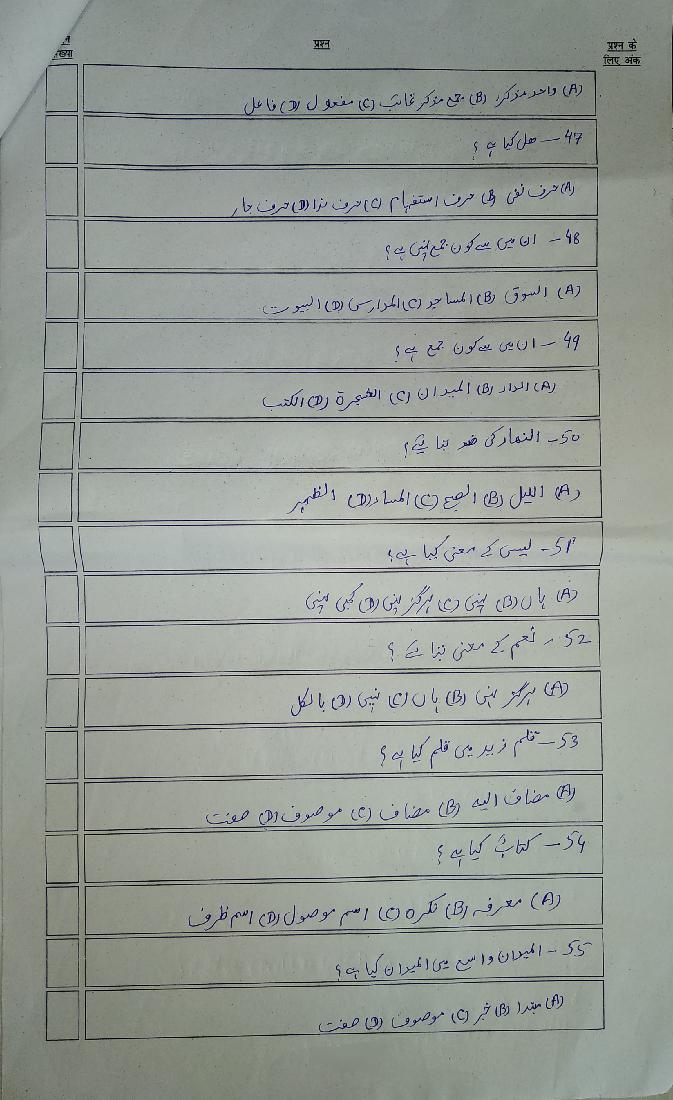 प्रश्न
प्रश्न के
लिए अंक
(A) واحد مذکر (B) جمع مذکر غائب (C) مفعول (D) فاعل
47 – ھل کیا ہے ؟
(A) حرف نفی (B) حرف استفہام (C) حرف ندا (D) حرف جار
48 – ان میں سے کون جمع نہیں ہے ؟
(A) السوق (B) المساجد (C) المدارس (D) البیوت
49 – ان میں سے کون جمع ہے ؟
(A) الدار (B) المیدان (C) الشجرة (D) الکتب
50 – النھار کی ضد بتائیے ؟
(A) اللیل (B) الصبح (C) المساء (D) الظہر
51 – لیس کے معنی کیا ہے ؟
(A) ہاں (B) نہیں (C) ہرگز نہیں (D) کبھی نہیں
52 – نعم کے معنی بتائیے ؟
(A) ہرگز نہیں (B) ہاں (C) نہیں (D) بالکل
53 – قلم زید میں قلم کیا ہے ؟
(A) مضاف الیہ (B) مضاف (C) موصوف (D) صفت
54 – کتابٌ کیا ہے ؟
(A) معرفہ (B) نکرہ (C) اسم موصول (D) اسم ظرف
55 – المیدان واسع میں المیدان کیا ہے ؟
(A) مبتدا (B) خبر (C) موصوف (D) صفت